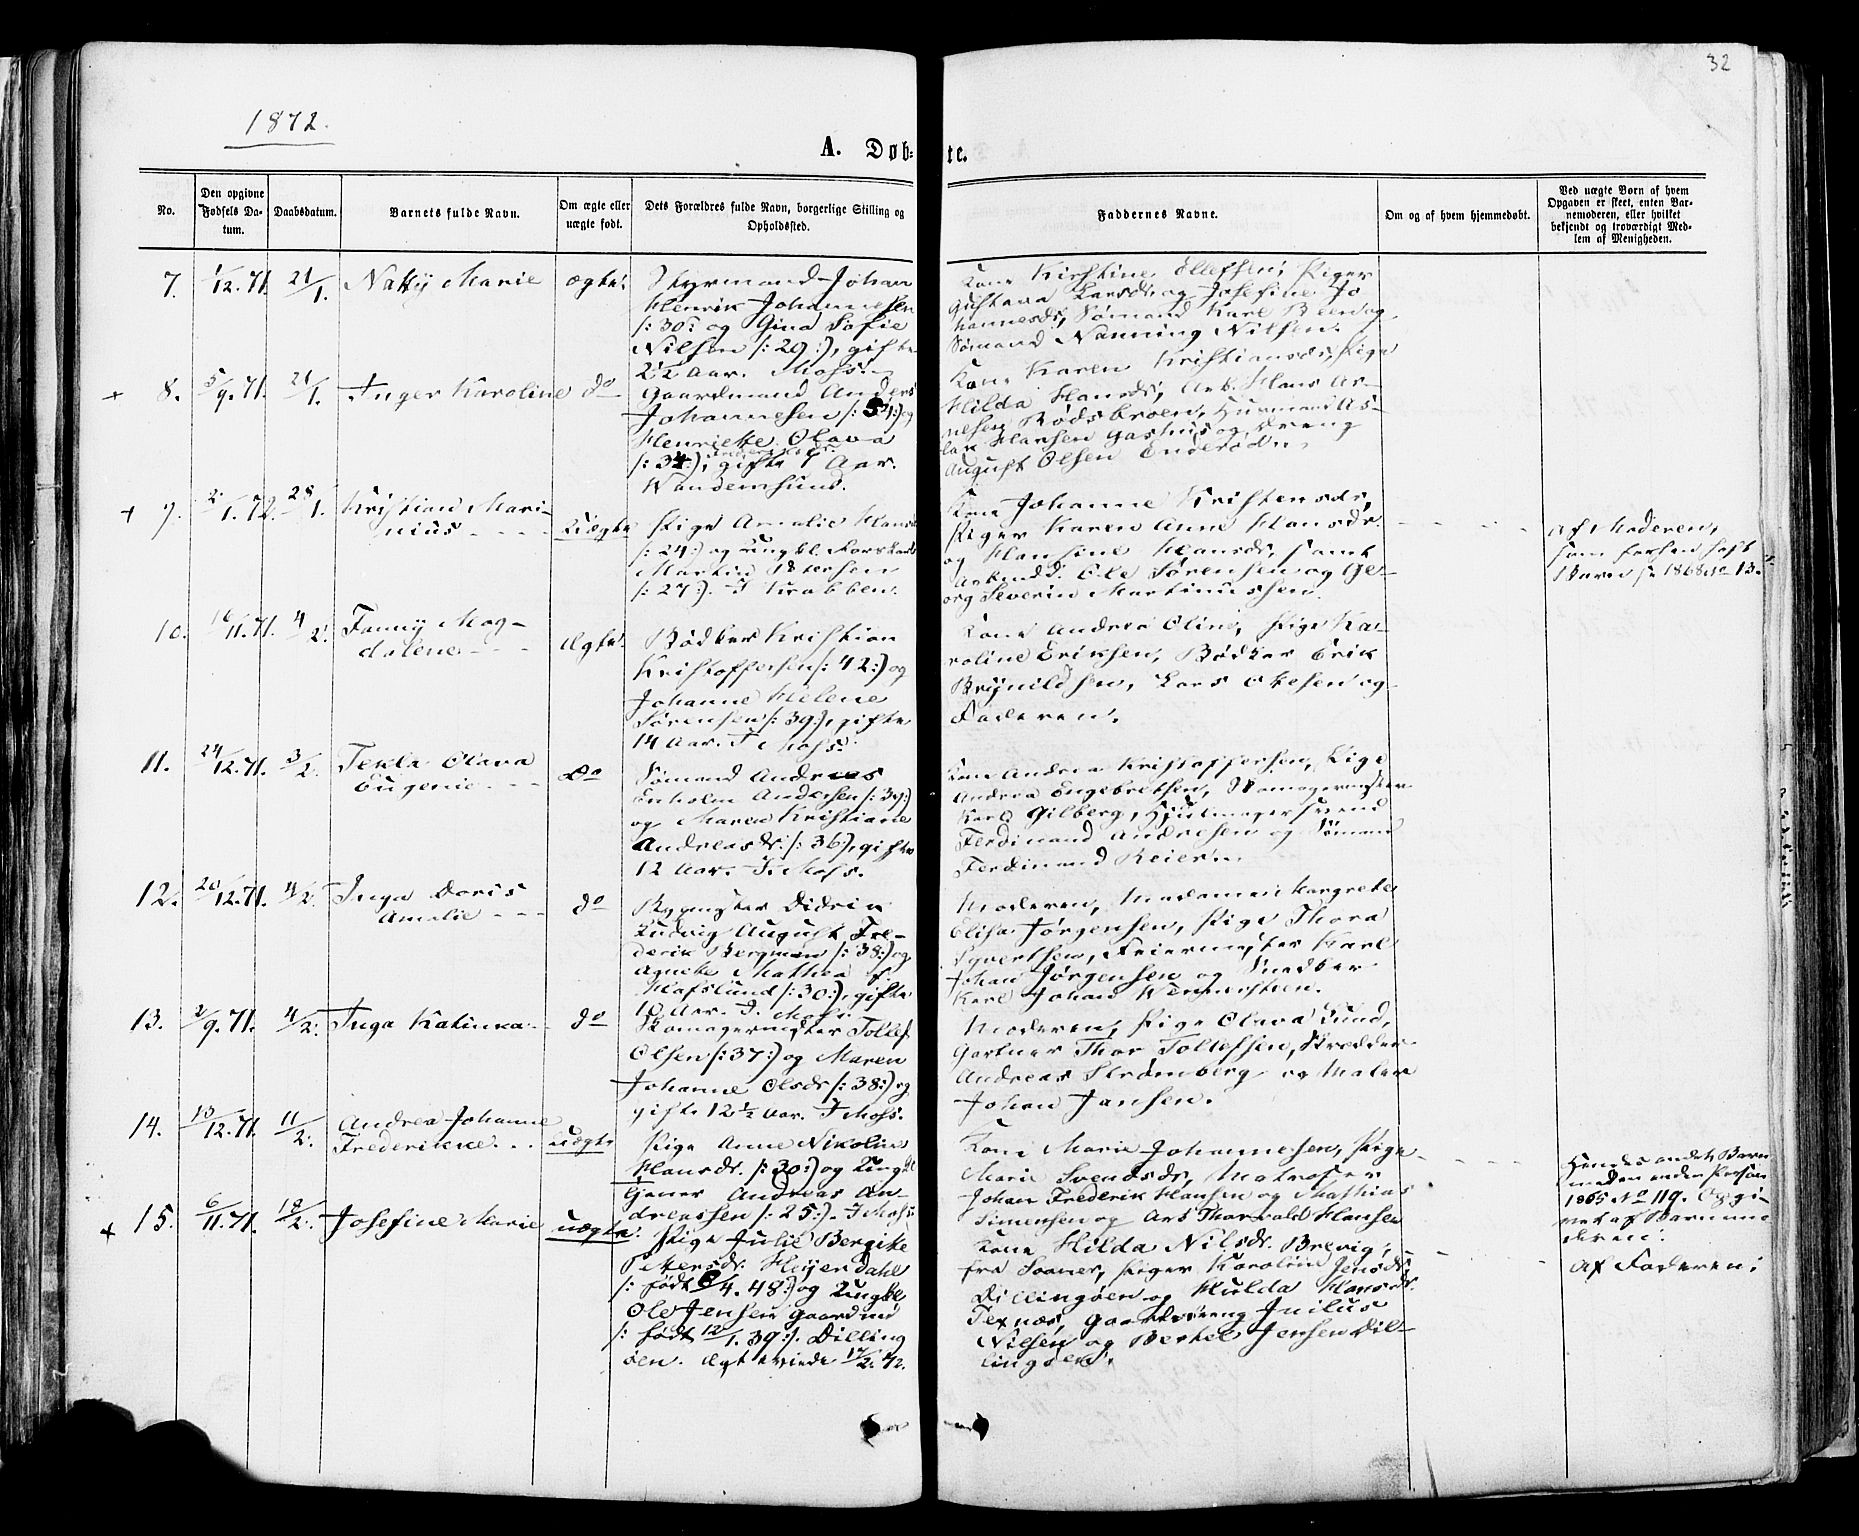 32
1872.
A. Døb-
te.
No.
Den opgivne
Fødsels Da-
tum.
Daabsdatum.
Barnets fulde Navn.
Om ægte eller
uægte født.
Dets Forældres fulde Navn, borgerlige Stilling og
Opholdssted.
Faddernes Navne.
Om og af hvem hjemmedøbt.
Ved uægte Børn af hvem
Opgaven er skeet, enten Bar-
nemoderen, eller hvilket
bekjendt og troværdigt Med-
lem af Menigheden.
7.
1/12.71.
21/1.
Marie
ægte.
Styrmand Johan
Henrik Johannesen
/:30:/ og Gina Sofie
Nilsen /:29:/, gifte
2½ Aar. Moss.
Kone Kirstine Ellefsen, Piger
Gustava Larsdr og Josefine Jo
hannesdr, Sømand Karl
Sømand Nanning Nilsen.
+ 8.
5/9.71.
21/1.
Inger Karoline
do
Gaardmand Anders
Johannesen /:51:/ og
Henriette Olava
/:34:/, gifte 1 Aar.
Vandemsund.
Kone Karen Kristiansdr, Pige
Hilda Hansdr, Arb. Hans As-
Rødsbroen, Husmand As-
lak Hansen Gashus og Dreng
August Olsen
+ 9.
2/1.72.
28/1.
Kristian Mari-
nius
Uægte
Pige Amalie Hansdr
/:24:/ og Ungkl.
Martin Petersen
/:27:/. I Krabben.
Kone Johanne Kristensdr,
Piger Karen Anne Hansdr
og Hansine Hansdr, samt
Arbmd. Ole Sørensen og Ge-
org Severin Martinussen.
Af Moderen,
som forhen havt
Barn 1868 No 13.
10.
16/11.71.
4/2.
Fanny Mag-
dalene
Ægte.
Bødker Kristian
Kristoffersen /:42:/ og
Johanne Helene
Sørensen /:39:/, gifte
14 Aar. I Moss.
Kone Andrea Oline, Pige Ka-
roline Eriksen, Bødker Erik
Brynildsen, Lars Olesen og
Faderen.
11.
24/12.71.
3/2.
Tekla Olava
Eugenie
Do
Sømand Andreas
Enholm Andersen /:39:/
og Maren Kristiane
Andreasdr. /:36:/, gifte
12 Aar. I Moss.
Kone Andrea Kristoffersen, Pige
Andrea Engebretsen, Skomagermester
Karl Gilberg, Hjulmagersvend
Ferdinand Andresen og Sømand
Ferdinand Reier
12.
20/12.71.
4/2.
Inga Doris
Amalie
do
Bygmester Didrik
Ludvig August Fre-
derik Bergman /:38:/ og
Agnete Mathea f.
Hafslund /:30:/, gifte
10 Aar. I Moss.
Moderen, Madamen Margrete
Elise Jørgensen, Pige Thora
Syvertsen, Feiermester Karl
Johan Jørgensen og Snedker
Karl Johan Wennersteen.
13.
2/9.71.
4/2.
Inga Katinka.
do
Skomagermester Tollef
Olsen /:37:/ og Maren
Johanne Olsdr /:38:/ og
gifte 12½ Aar. I Moss.
Moderen, Pige Olava Lund,
Gartner Thor Tollefsen, Skrædder
Andreas Strømberg og Maler
Johan Jansen.
14.
13/12.71.
11/2.
Andrea Johanne
Frederikke
Uægte
Pige Anne Nikoline
Hansdr. /:30:/ og Ungkl
Andreas An-
dreassen /:25:/. I Moss
Kone Marie Johannesen, Pige
Marie Svendsdr, Matroser
Johan Frederik Hansen og Mathias
Simensen og Arb Thorvald Hansen
Hendes andet Barn
med en anden Person
1865 No 119. Opgi-
vet af Barnemo
deren.
+ 15.
6/11.71.
18/2.
Josefine Marie
uægte.
Pige Julie Bergite
Petersdr. Høyendahl
/: født 6/4. 48:/ og Ungkl
Ole Jensen Gaardmd
/: født 12/1. 39:/. Dilling
øen. Ægteviede 17/2. 72.
Kone Hilda Nilsdr. Brevig,
fra Soaner, Piger Karoline Jensdr
Dillingøen og Hulda Hansdr.
Texnæs, Gaarddreng Julius
Nilsen og Bertel Jensen Dil-
lingøen.
Af Faderen.